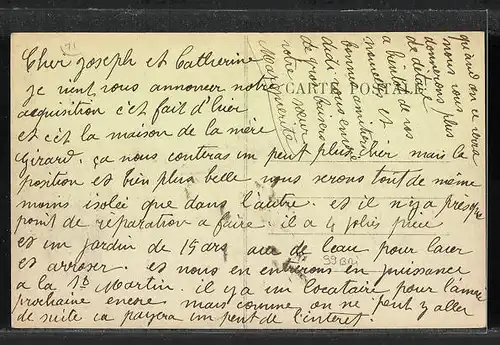 Cher Joseph et Catherine
je vint vous annoncer notre
acquisition c'et fait d'hier
et cet la maison de la mère
Girard. ça nous conteras un peut plus cher mais la
position et bien plus belle nous serons tout de même
moins isolée que dans l'autre. et il n'y a presque
point de réparation a faire. il a 4 jolies pièce
et un jardin de 15 ars avec de l'eau pour laver
et arroser. et nous en entrerons en puissance
a la St Martin. il y a un locataire pour l'année
prochaine encore mais comme on ne peut y aller
de suite ca payera un peut de l'interet.
quand on ce verra
nous vous
donnerons plus
de détaile
a bientot de vos
nouvelles et
bonnes amitiers
didi vous envoie
de gros baisers
votre soeur
Marguerite
CARTE POSTALE